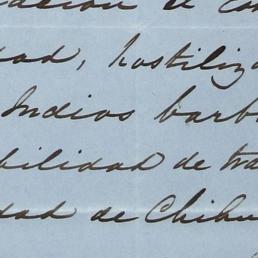 dad, hostiliza
Indios barb
bilidad de tra
dad de Chihu